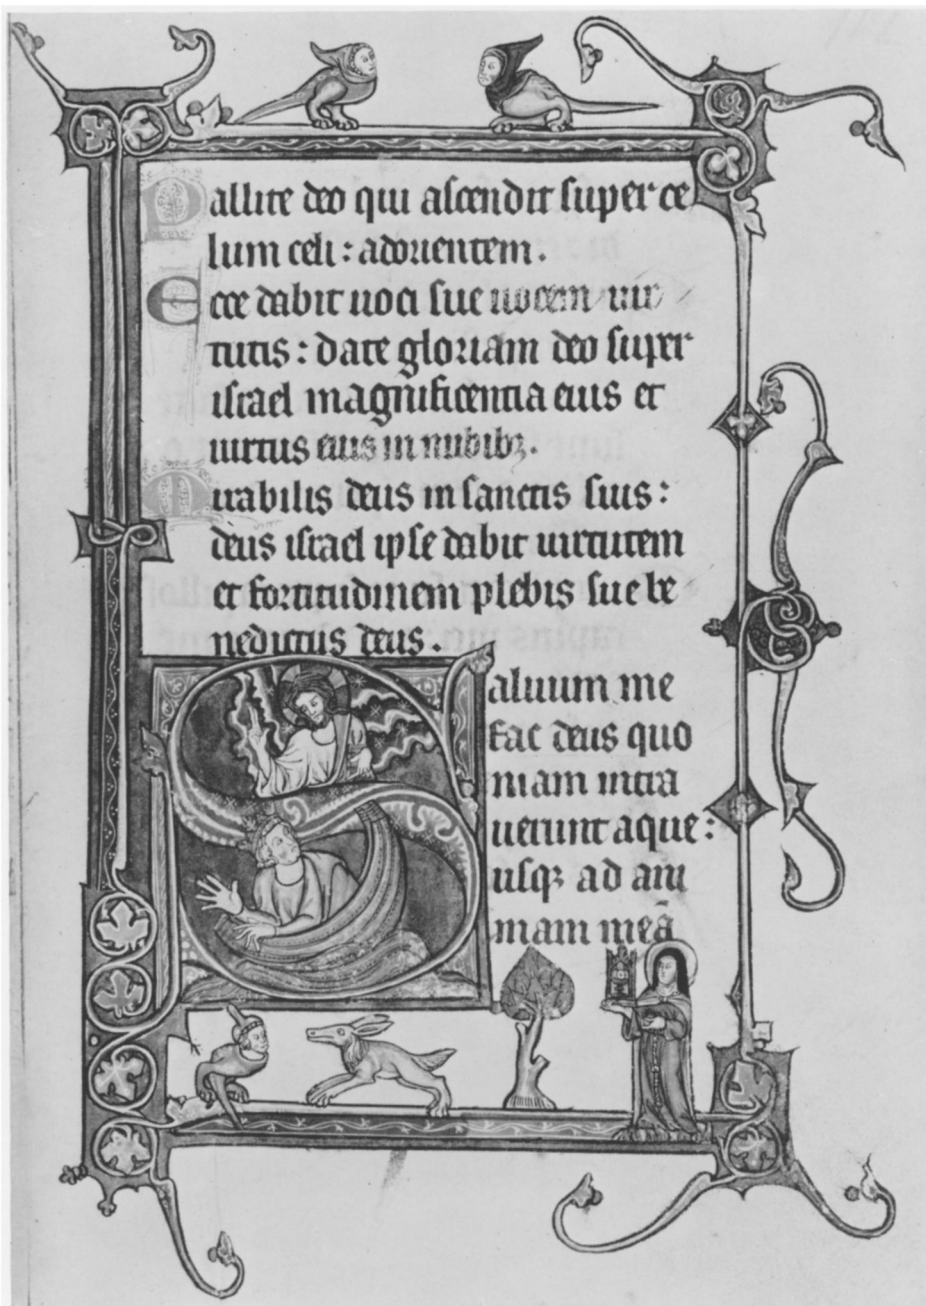 Psallite deo qui ascendit super ce
lum celi : adorientem .
Ecce dabit uoci sue uocem uir
tutis : date gloriam deo super
israel magnificentia eius et
uirtus eius in nubibꝫ .
Mirabilis deus in sanctis suis :
deus israel ipse dabit uirtutem
et fortitudinem plebis sue be
nedictus deus .
Saluum me
fac deus quo
niam intra
uerunt aque :
usqꝫ ad ani
mam meā